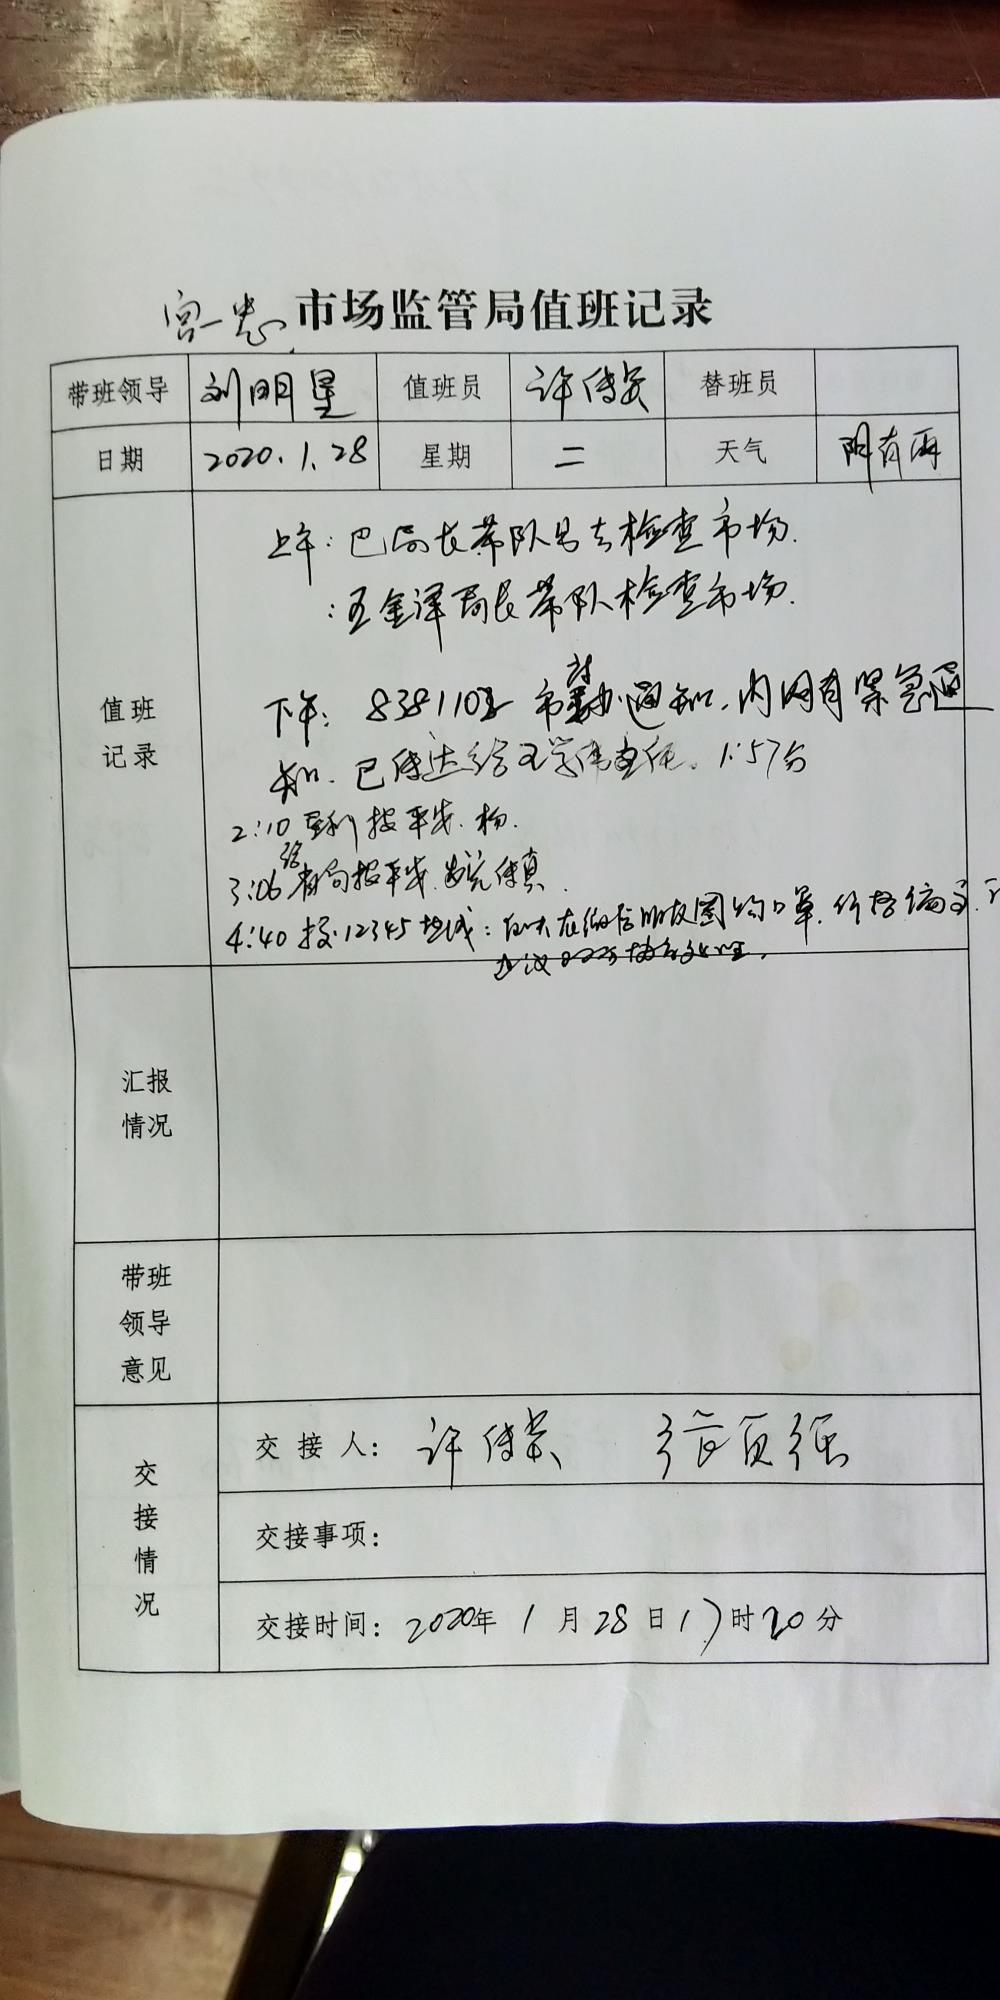 市场监管局值班记录
带班领导 刘明星 值班员 许传 替班员
日期 2020.1.28 星期 二 天气 阴有雨
值班记录
上午：巴局长带队另去检查市场.
：王金泽局长带队检查市场.
下午：838110 市 办通知.内网有紧急通
知.已传达给王 主任. 1:57分
2:10 报平安.杨.
3:06 局报平安.发完传真.
4:40 接12345热线： 在微信朋友圈购口罩.价格偏高.
建议
汇报情况
带班领导意见
交接情况
交接人：许传荣
交接事项：
交接时间：2020年1月28日17时20分